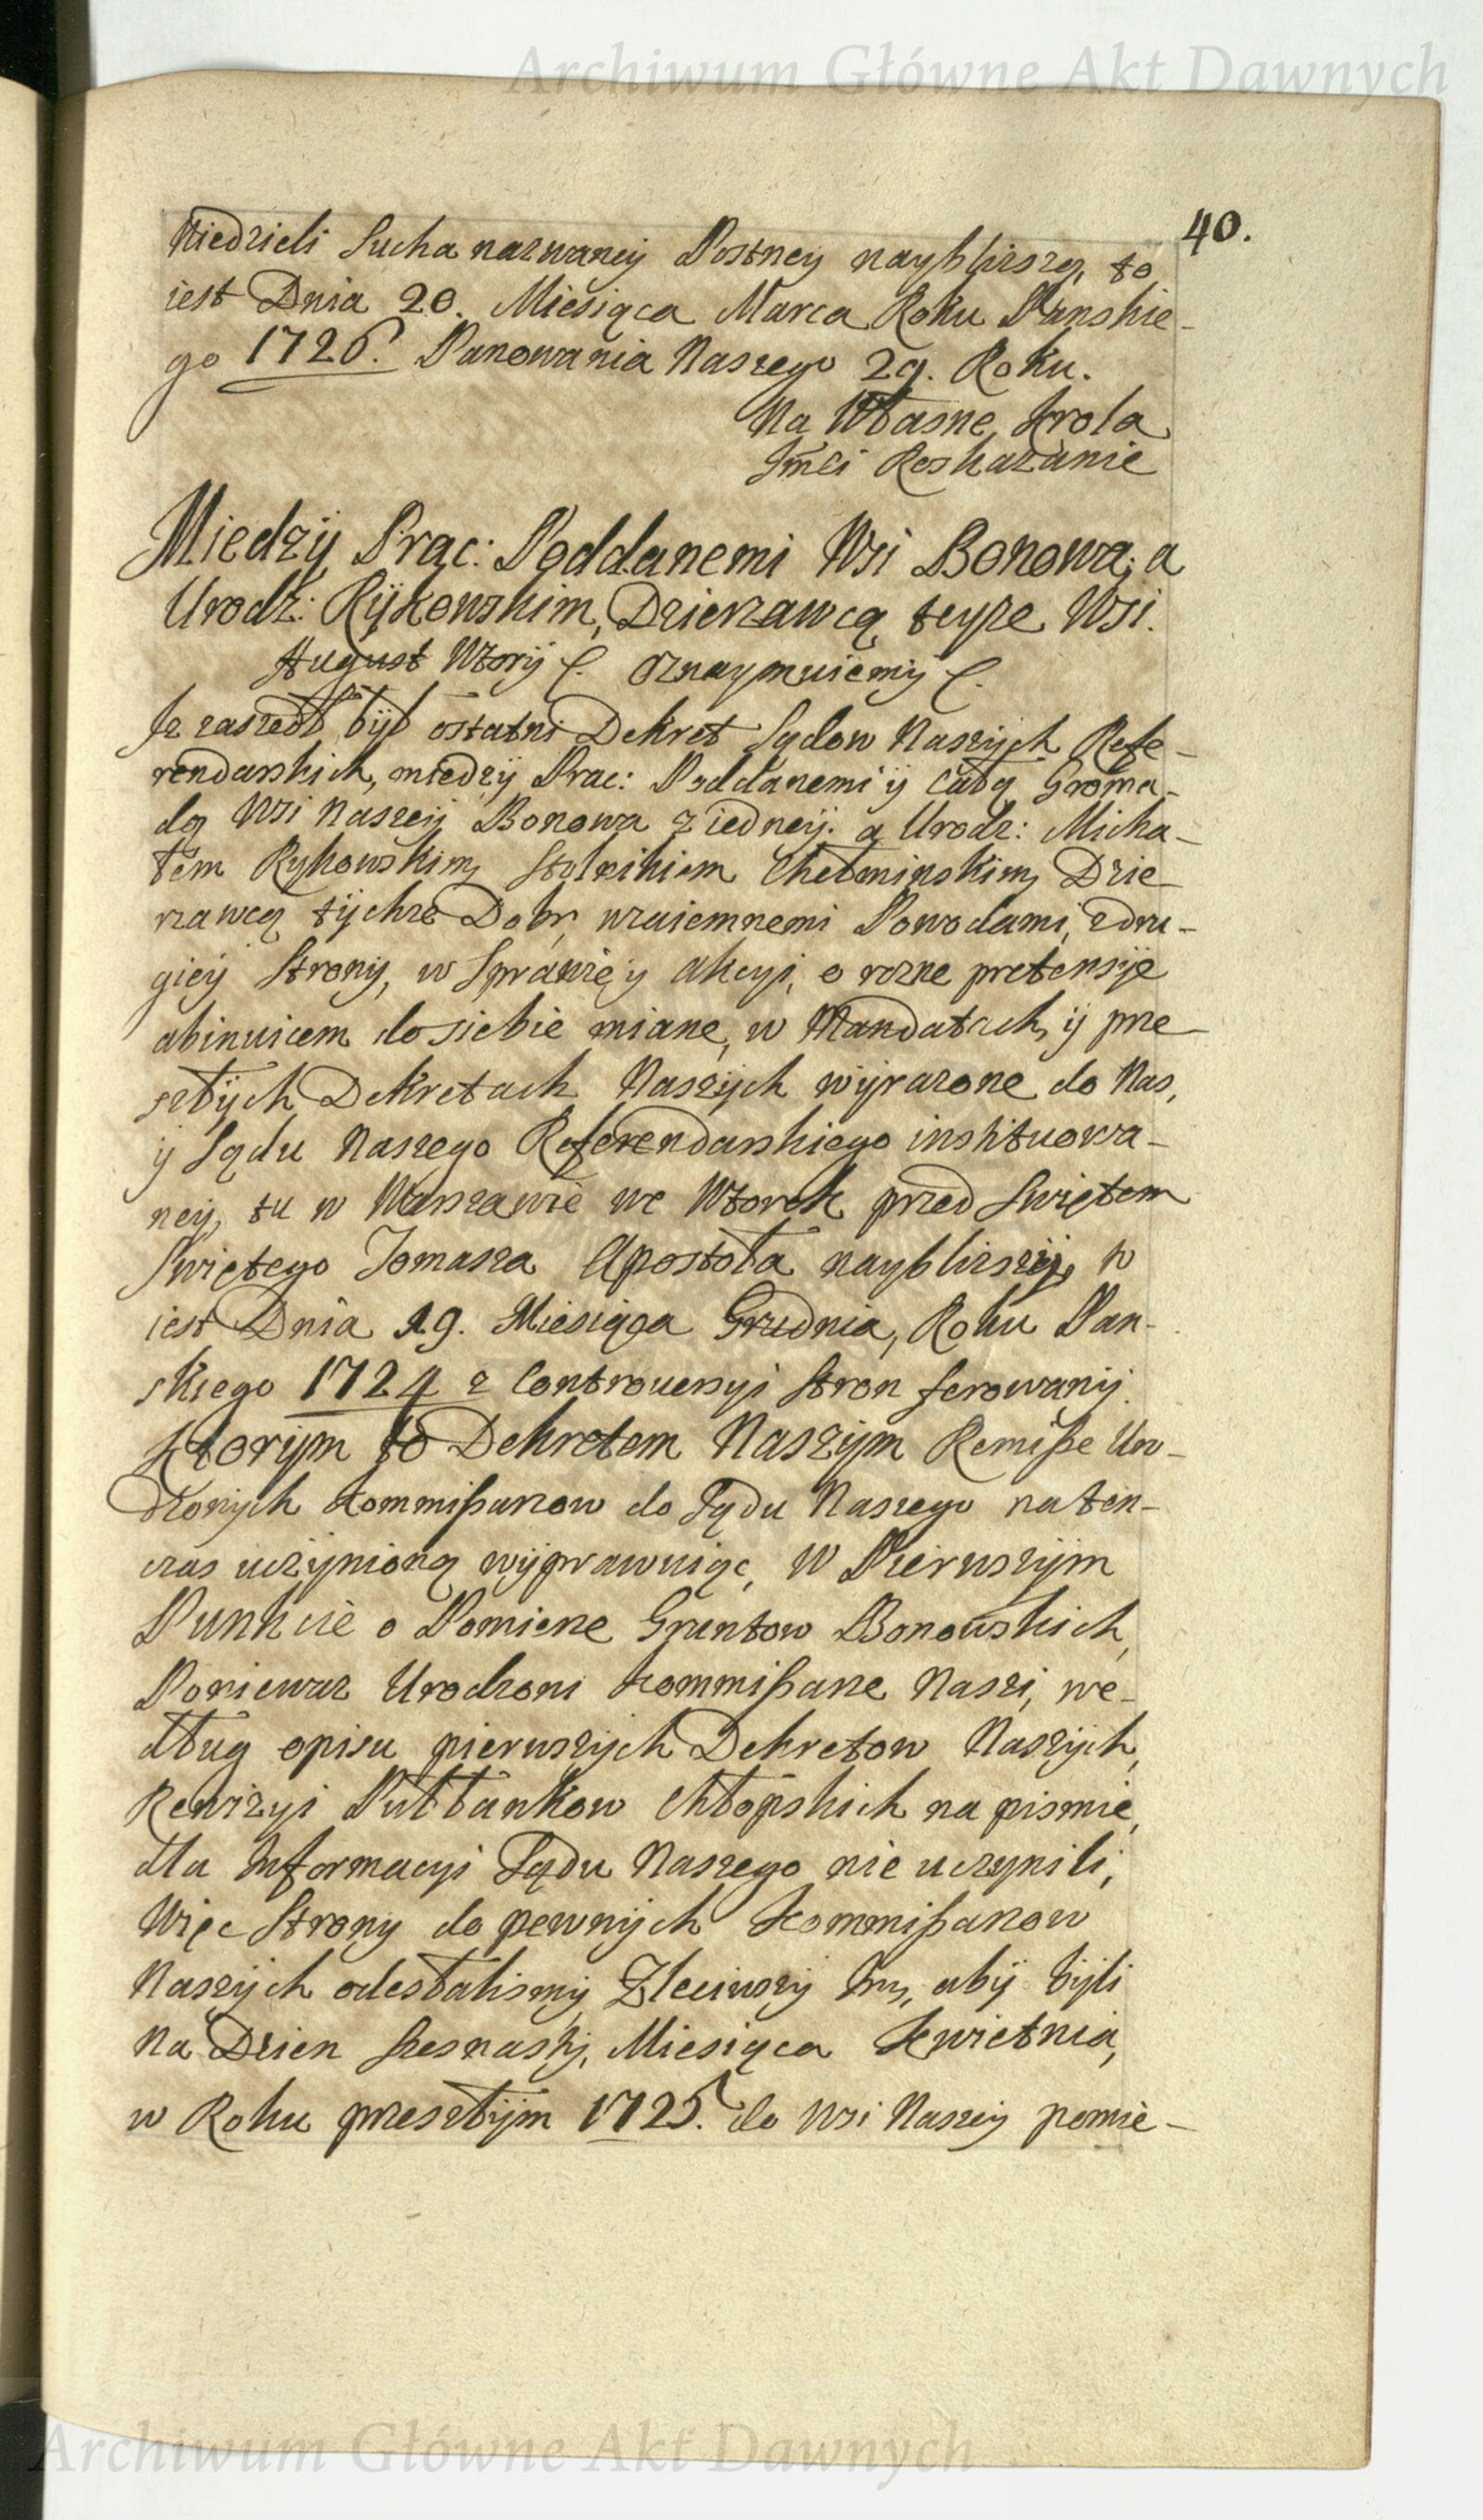 Archiwum Główne Akt Dawnych
40.
Niedzieli Sucha nazwaney Postney nayblizszey, to
iest Dnia 20. Miesiąca Marca Roku Panskie-
go 1726. Panowania Naszego 29. Roku.
Na Własne Krola
Jmci Roskazanie
Miedzÿ Prac: Poddanemi Wsi Bonowa, a
Urodz: Rÿkowskim, Dzierzawcą teyze Wsi.
August Wtorÿ &. Oznaymuiemÿ &.
Iz zaszedł bÿł ostatni Dekret Sądow Naszÿch Refe-
rendarskich, miedzÿ Prac: Poddanemi ÿ całą Groma-
dą Wsi Naszeÿ Bonowa z iedneÿ. a Urodz: Micha-
łem Rykowskim Stolnikiem Chełminskim Dzie-
rzawcą tÿchze Dobr wzaiemnemi Powodami, z dru-
gieÿ Stronÿ, w Sprawie ÿ akcyi, o rozne pretensÿe
abinuicem do siebie miane, w Mandatach, ÿ prze-
szłÿch Dekretach Naszÿch wÿrazone do Nas,
ÿ Sądu Naszego Referendarskiego instituowa-
neÿ, tu w Warszawie we Wtorek przed Swiętem
Swiętego Tomasza Apostoła nayblizszÿm to
iest Dnia 19. Miesiąca Grudnia, Roku Pan-
skiego 1724 z Controuersyi Stron ferowanÿ.
Ktorÿm to Dekretem Naszÿm Remiße Uro-
dzonÿch Kommißarzow do Sądu Naszego na ten-
czas uczÿnioną wÿprawuiąc, W Pierwszÿm
Punkcie o Pomierze Gruntow Bonowskich,
Poniewaz Urodzoni Kommißarze Naszi, we-
dług opisu pierwszÿch Dekretow Naszÿch,
Rewizyi Pułłankow Chłopskich na pismie,
dla Informacyi Sądu Naszego nie uczynili,
Więc Strony do pewnÿch Kommißarzow
Naszÿch odesłalismÿ Zleciwszÿ Im, abÿ bÿli
Na Dzien Szesnastÿ, Miesiąca Kwietnia,
w Roku przeszłÿm 1725. do Wsi Naszeÿ pomie-
Archiwum Główne Akt Dawnych